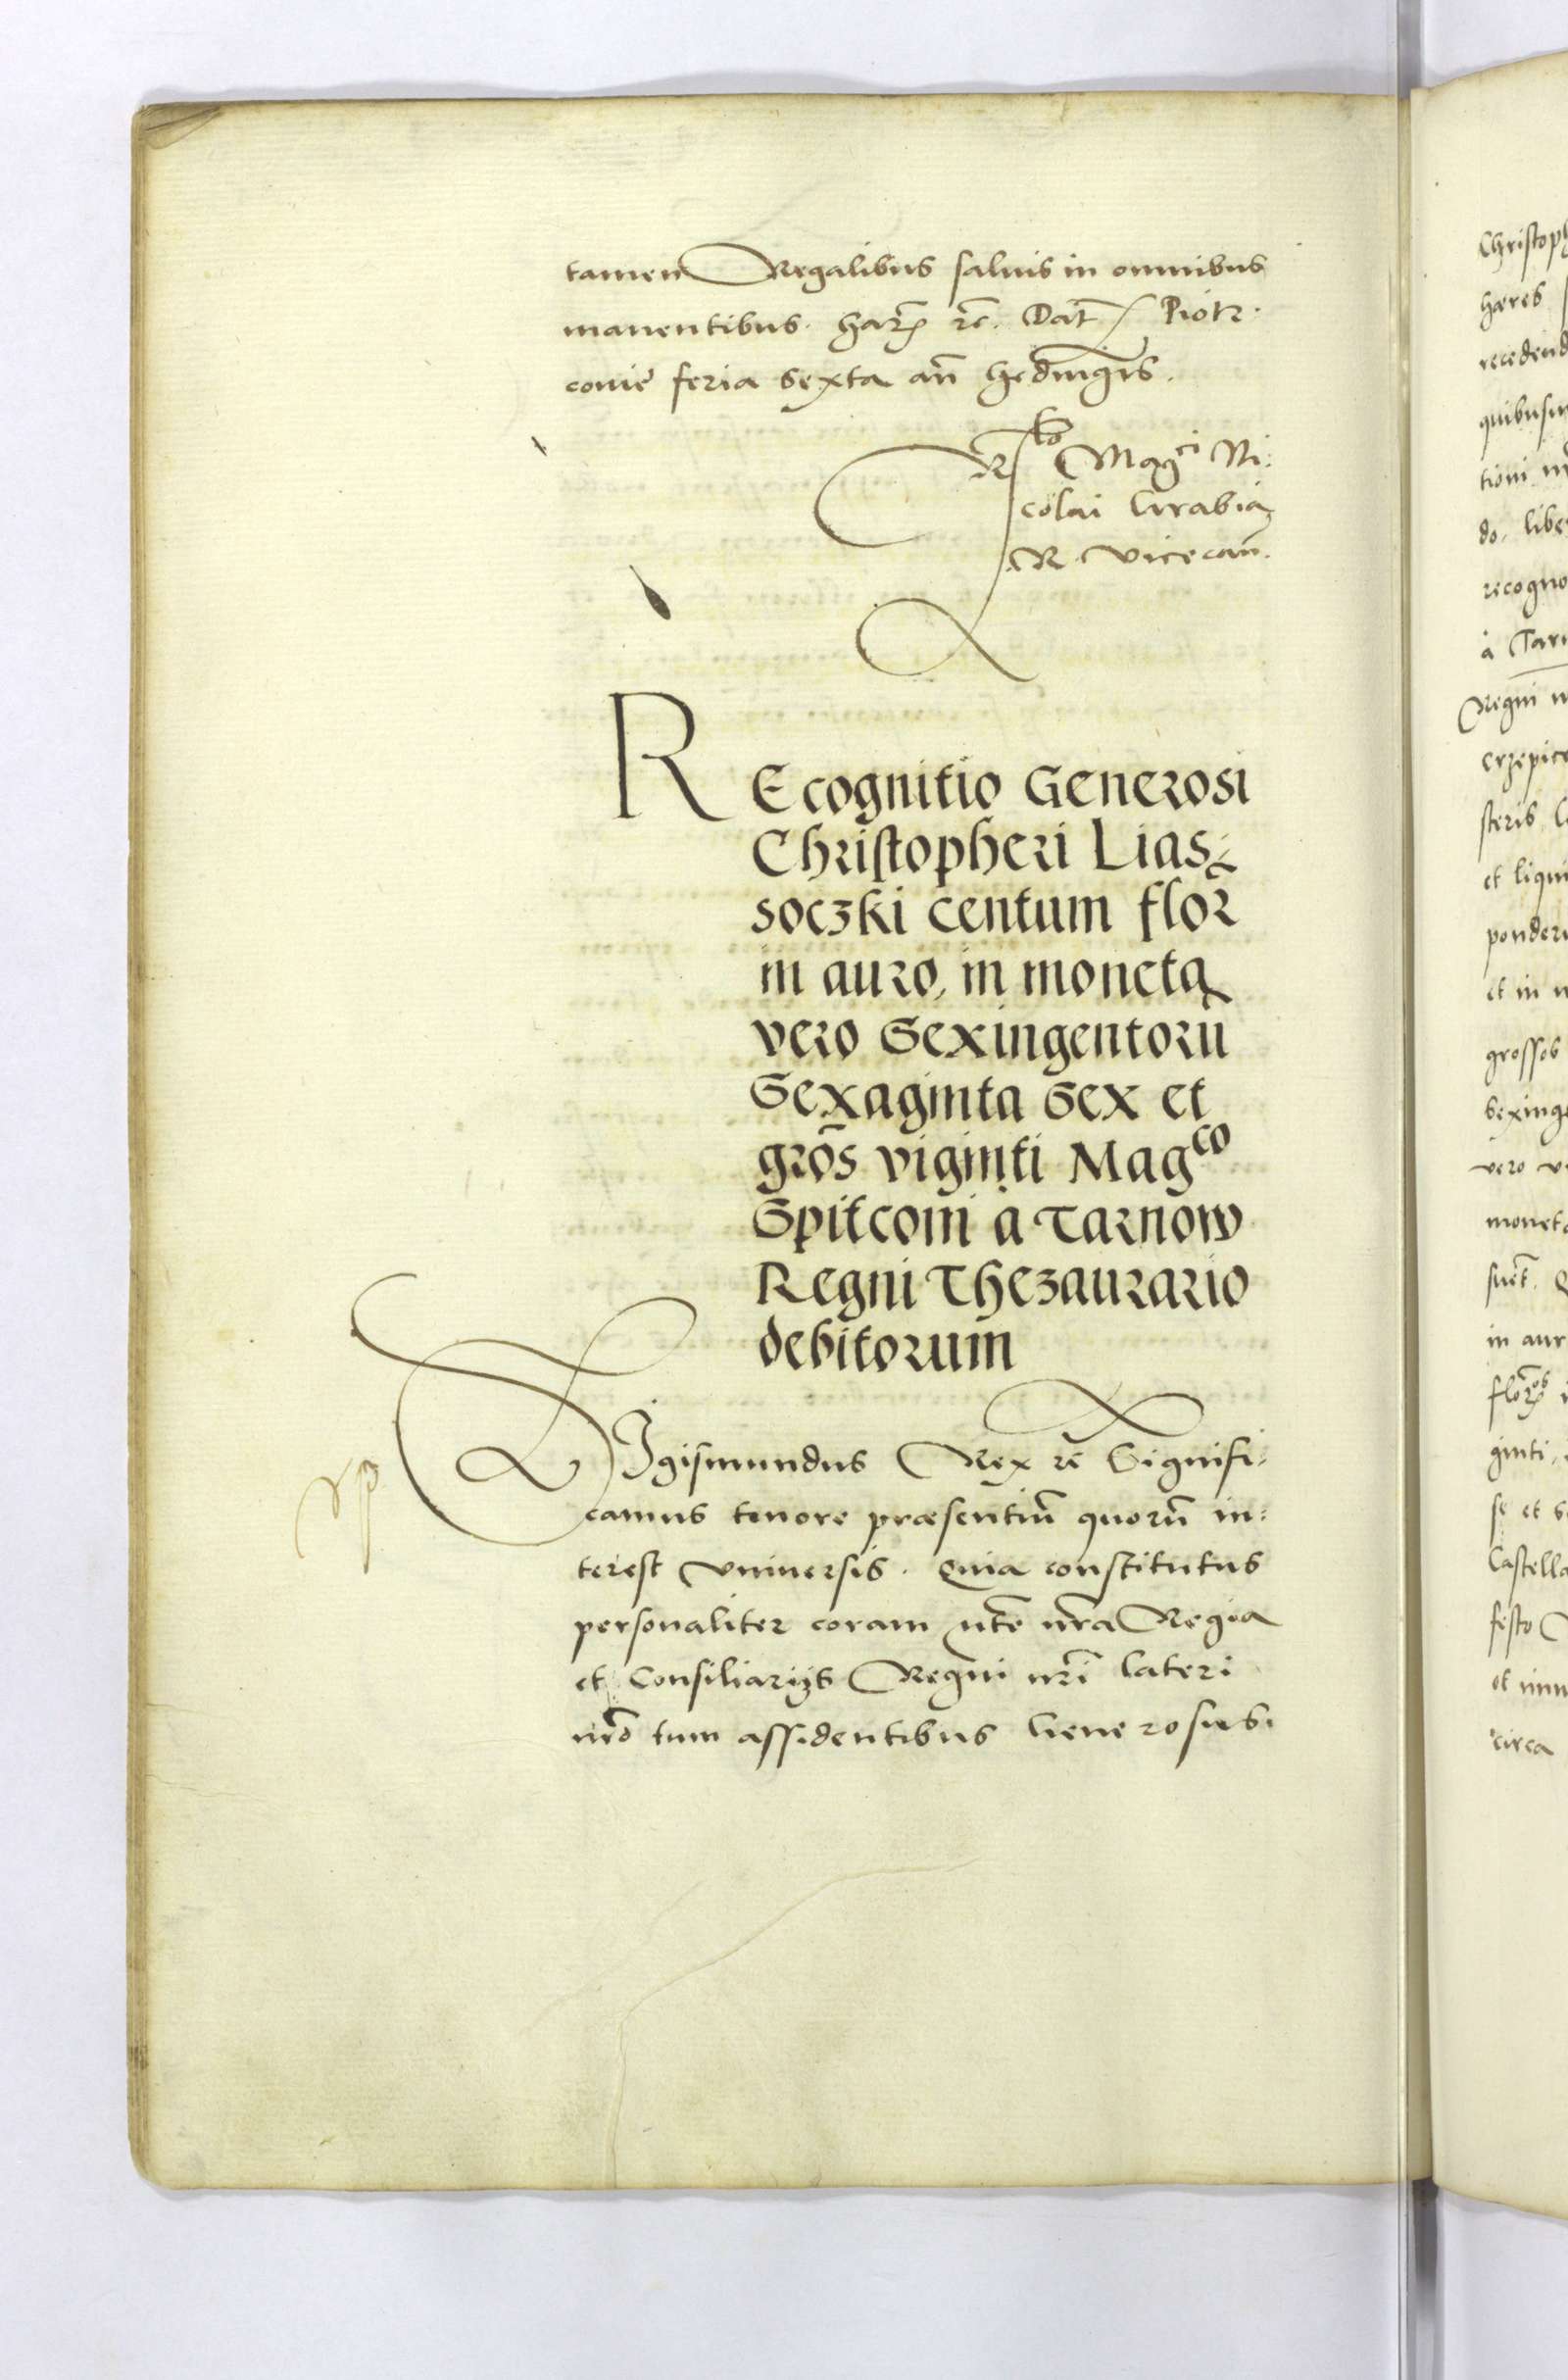 tamen Regalibus salvis in omnibus
manentibus. har͂ꝝ rc̄. Dat͂ Piotr:
coviẽ feria Sexta añ hedvigis.
R͂lo Magci Ni:
colai Grabia
R. Vicecañ.
REcognitio Generosi
Christopheri Lias:
soczki centum flor
in auro, in moneta
vero Sexingentorũ
Sexaginta Sex et
grõs viginti Magco
Spitconi a Tarnow
Regni Thezaurario
debitorum
SIgismundus Rex rc̄ Signifi:
camus tenore præsentiũ quorũ in:
terest Vniversis. Quia constitutus
personaliter coram M̃te nr̃a Regia
et Consiliarijs Regni nr̃i lateri
nr̃o tum assidentibus Generosus
Christoph
hæres
recedend
quibusu
tioni
do, libe
recogno
à Tar
Regni
crzepice
steris
et liqui
ponder
et in
grossos
Sexing
vero
moneta
in aur
ginti
se et
Castella
festo
circa